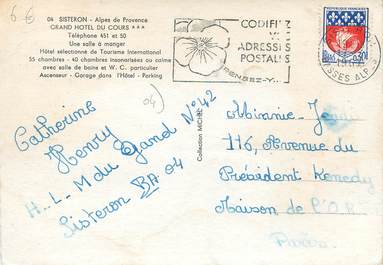 6 €
04 SISTERON - Alpes de Provence
GRAND HOTEL DU COURS ★★★
Téléphone 451 et 50
Une salle à manger
Hôtel sélectionné de Tourisme International
55 chambres - 40 chambres insonorisées ou calme
avec salle de bains et W.-C. particulier
Ascenseur - Garage dans l'Hôtel - Parking
04)
CODIFIEZ
VOS
ADRESSES
POSTALES
RENDEZ-V
SSES ALP
Collection MICHEL
Catherine
Henry
H-L-M du Gand N°42
Sisteron BA 04
Minnie
116, Avenue du
Président Kenedy
Maison de l'O.R
Paris